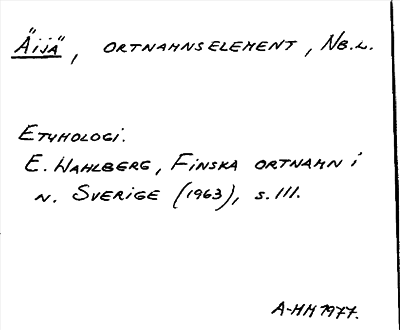 "Äijä", ORTNAMNSELEMENT, NB.L.
ETYMOLOGI.
E. WAHLBERG, FINSKA ORTNAMN I
N. SVERIGE (1963), S. 111.
A-HM 1977.